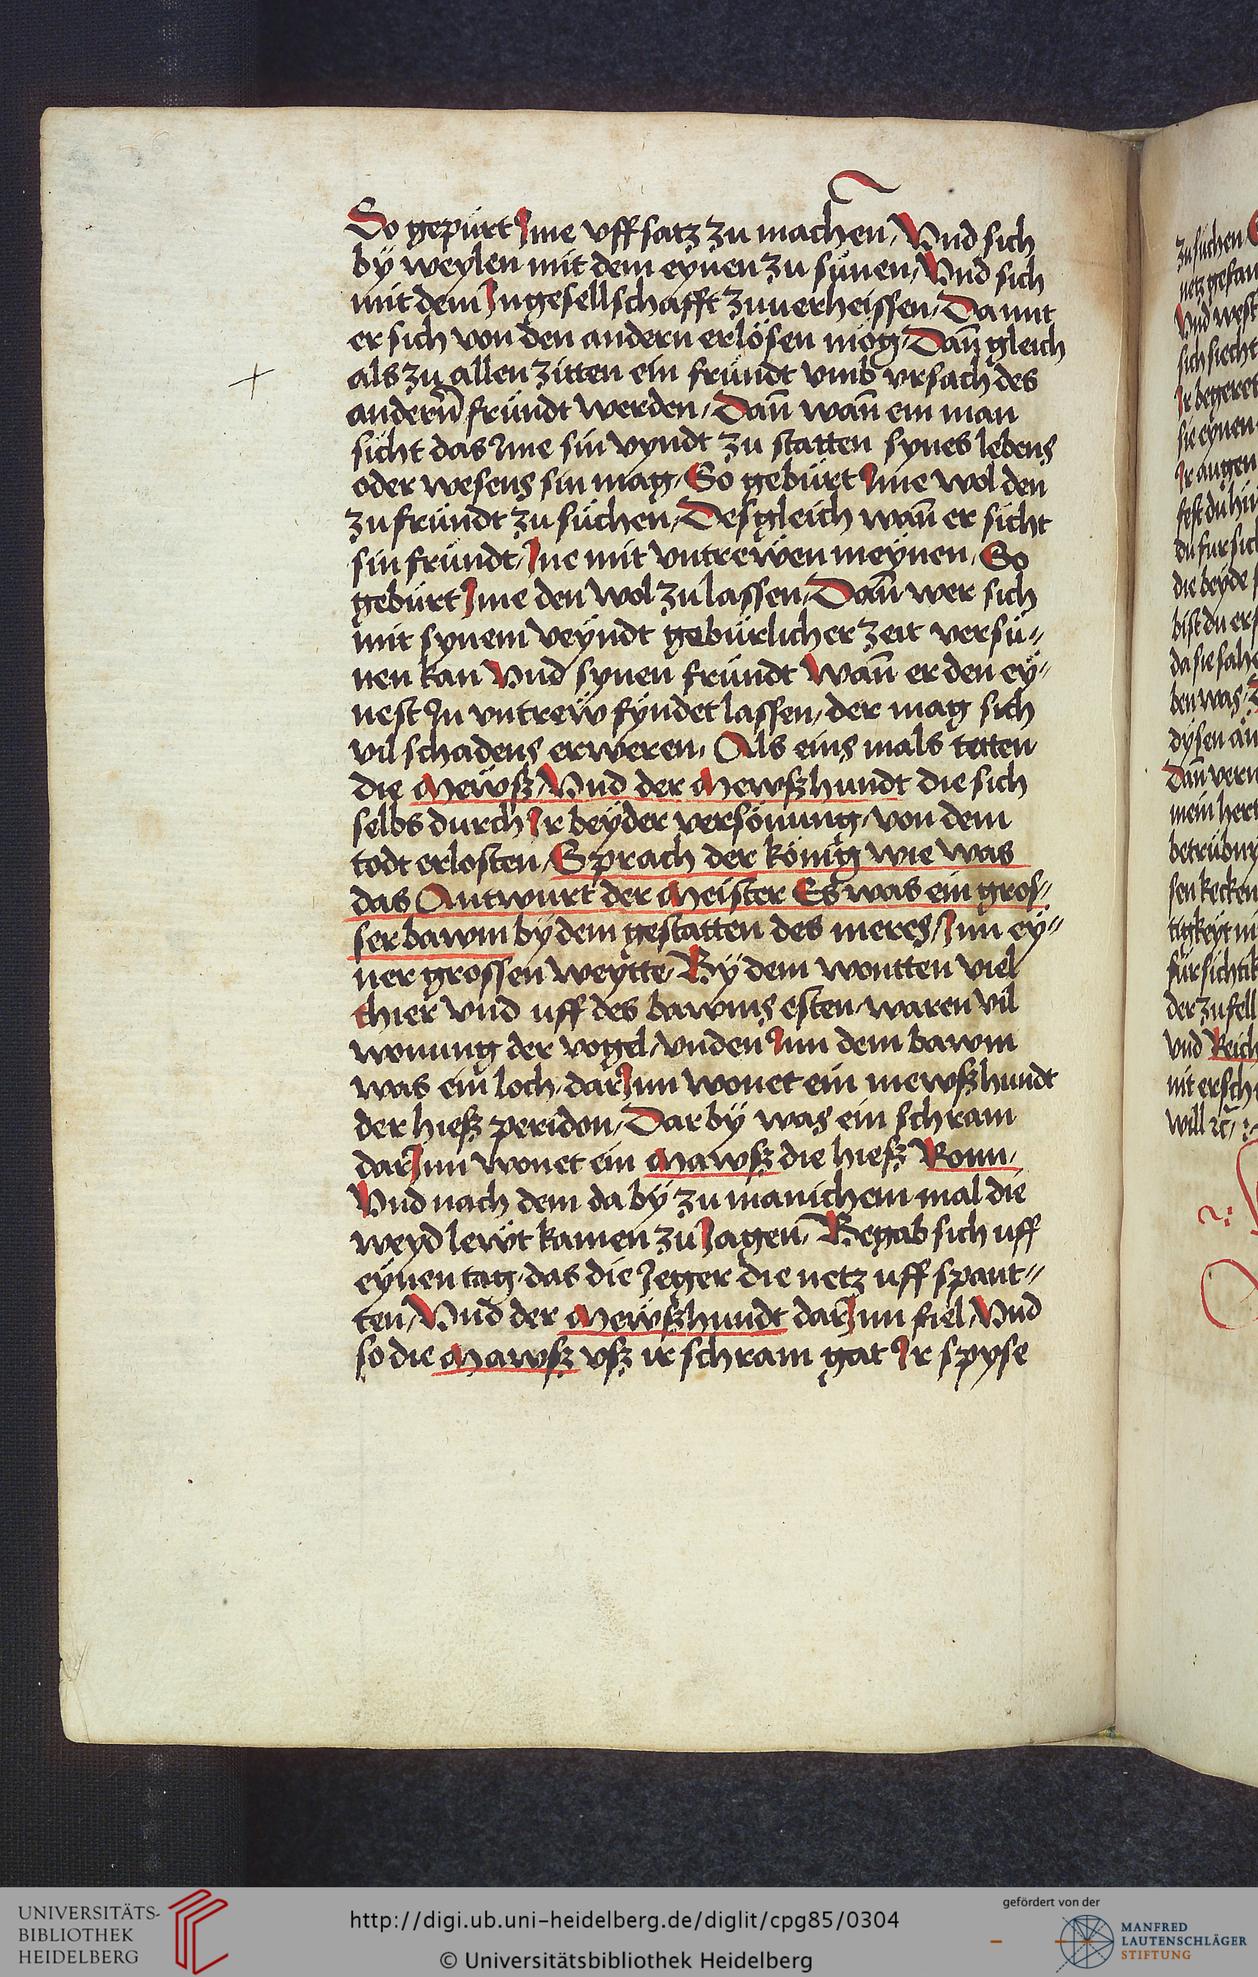 So gepürt Ime vffsatz zu machen / Vnd sich
by weylen mit dem eynen zu sünen / Vnd sich
mit dem In gesellschafft zuuerheissen / Damit
er sich von den andern erlösen mög / Dañ gleich
als zu allen zitten ein fründt vmb vrsach des
andern fründt werden / Dañ wañ ein man
sicht das Ime sin vyndt zu statten synes lebens
oder wesens sin mag / So gebürt Ime wol den
zu fründt zu süchen / Desgleich wañ er sicht
sin fründt / Ine mit vntrewen meynen / So
gebürt Ime den wol zu lassen / Dañ wer sich
mit synem veyndt gebürlicher zeit versü〃
nen kan Vnd synen fründt Wañ er den ey〃
nest In vntrew fyndet lassen / der mag sich
vil schadens erweren / Als eins mals tetten
die Mewß / Vnd der Mewßhundt die sich
selbs durch Ir beyder versönung / von dem
todt erlosten / Sprach der könig wie was
das Antwurt der Meister Es was ein gros〃
ser bawm by dem gestatten des meres / Inn ey〃
ner grossen weytte / By dem wontten viel
thier vnd uff des bawms esten waren vil
wonung der vogel / vnden Inn dem bawm
was ein loch / dar Inn wonet ein mewßhundt
der hieß peridon / Darby was ein schram
dar Inn wonet ein Mawß die hieß Ronn /
Vnd nach dem da by zu manichem mal die
weydlewt kamen zu Jagen / Begab sich uff
eynen tag / das die Jeger die netz uff spant〃
ten / Vnd der Mewßhundt dar Inn fiel / Vnd
so die Mawß vß ir schram gat Ir spyse
zu süchen
Vnd
sich siecht
Ir begeret
sie eynen
Ir augen
du für sich
die beyde
bist du
da sie sahe
ben was
dysen
Dañ
mein
betrübn
sen kecken
tigkeyt
fürsichtik
der zufell
vnd Reich
nit ersch
will
UNIVERSITÄTS-
BIBLIOTHEK
HEIDELBERG
http://digi.ub.uni-heidelberg.de/diglit/cpg85/0304
© Universitätsbibliothek Heidelberg
gefördert von der
MANFRED
LAUTENSCHLÄGER
STIFTUNG